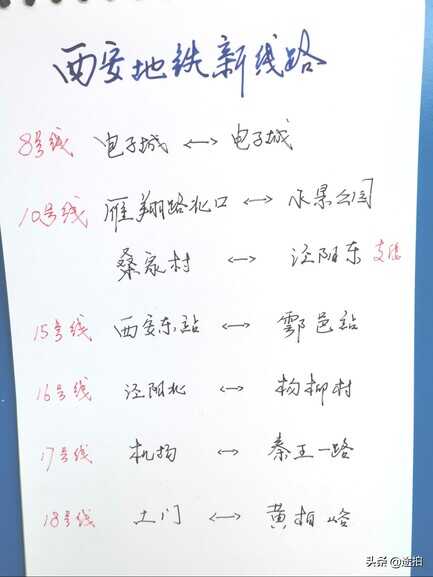 西安地铁新线路
8号线 电子城 ↔ 电子城
10号线 雁翔路北口 ↔ 水景公园
桑家村 ↔ 泾阳东 支线
15号线 西安东站 ↔ 鄠邑站
16号线 泾阳北 ↔ 杨柳村
17号线 机场 ↔ 秦王一路
18号线 土门 ↔ 黄柏峪
头条@逾拍